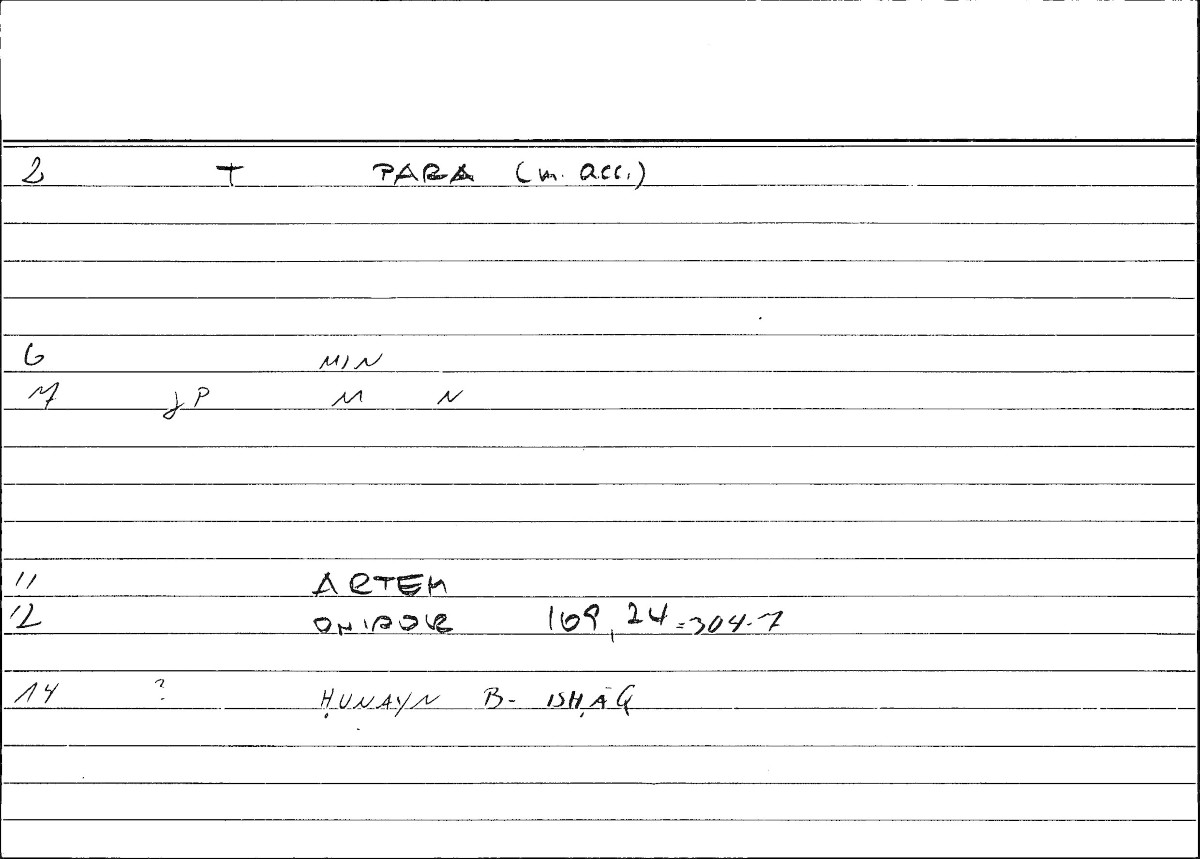 2 T PARA (m. acc.)
6 MIN
7 JP M N
11 ARTEM
12 ONIROK 169, 24 = 304.7
14 ? ḤUNAYN B. ISḤĀQ